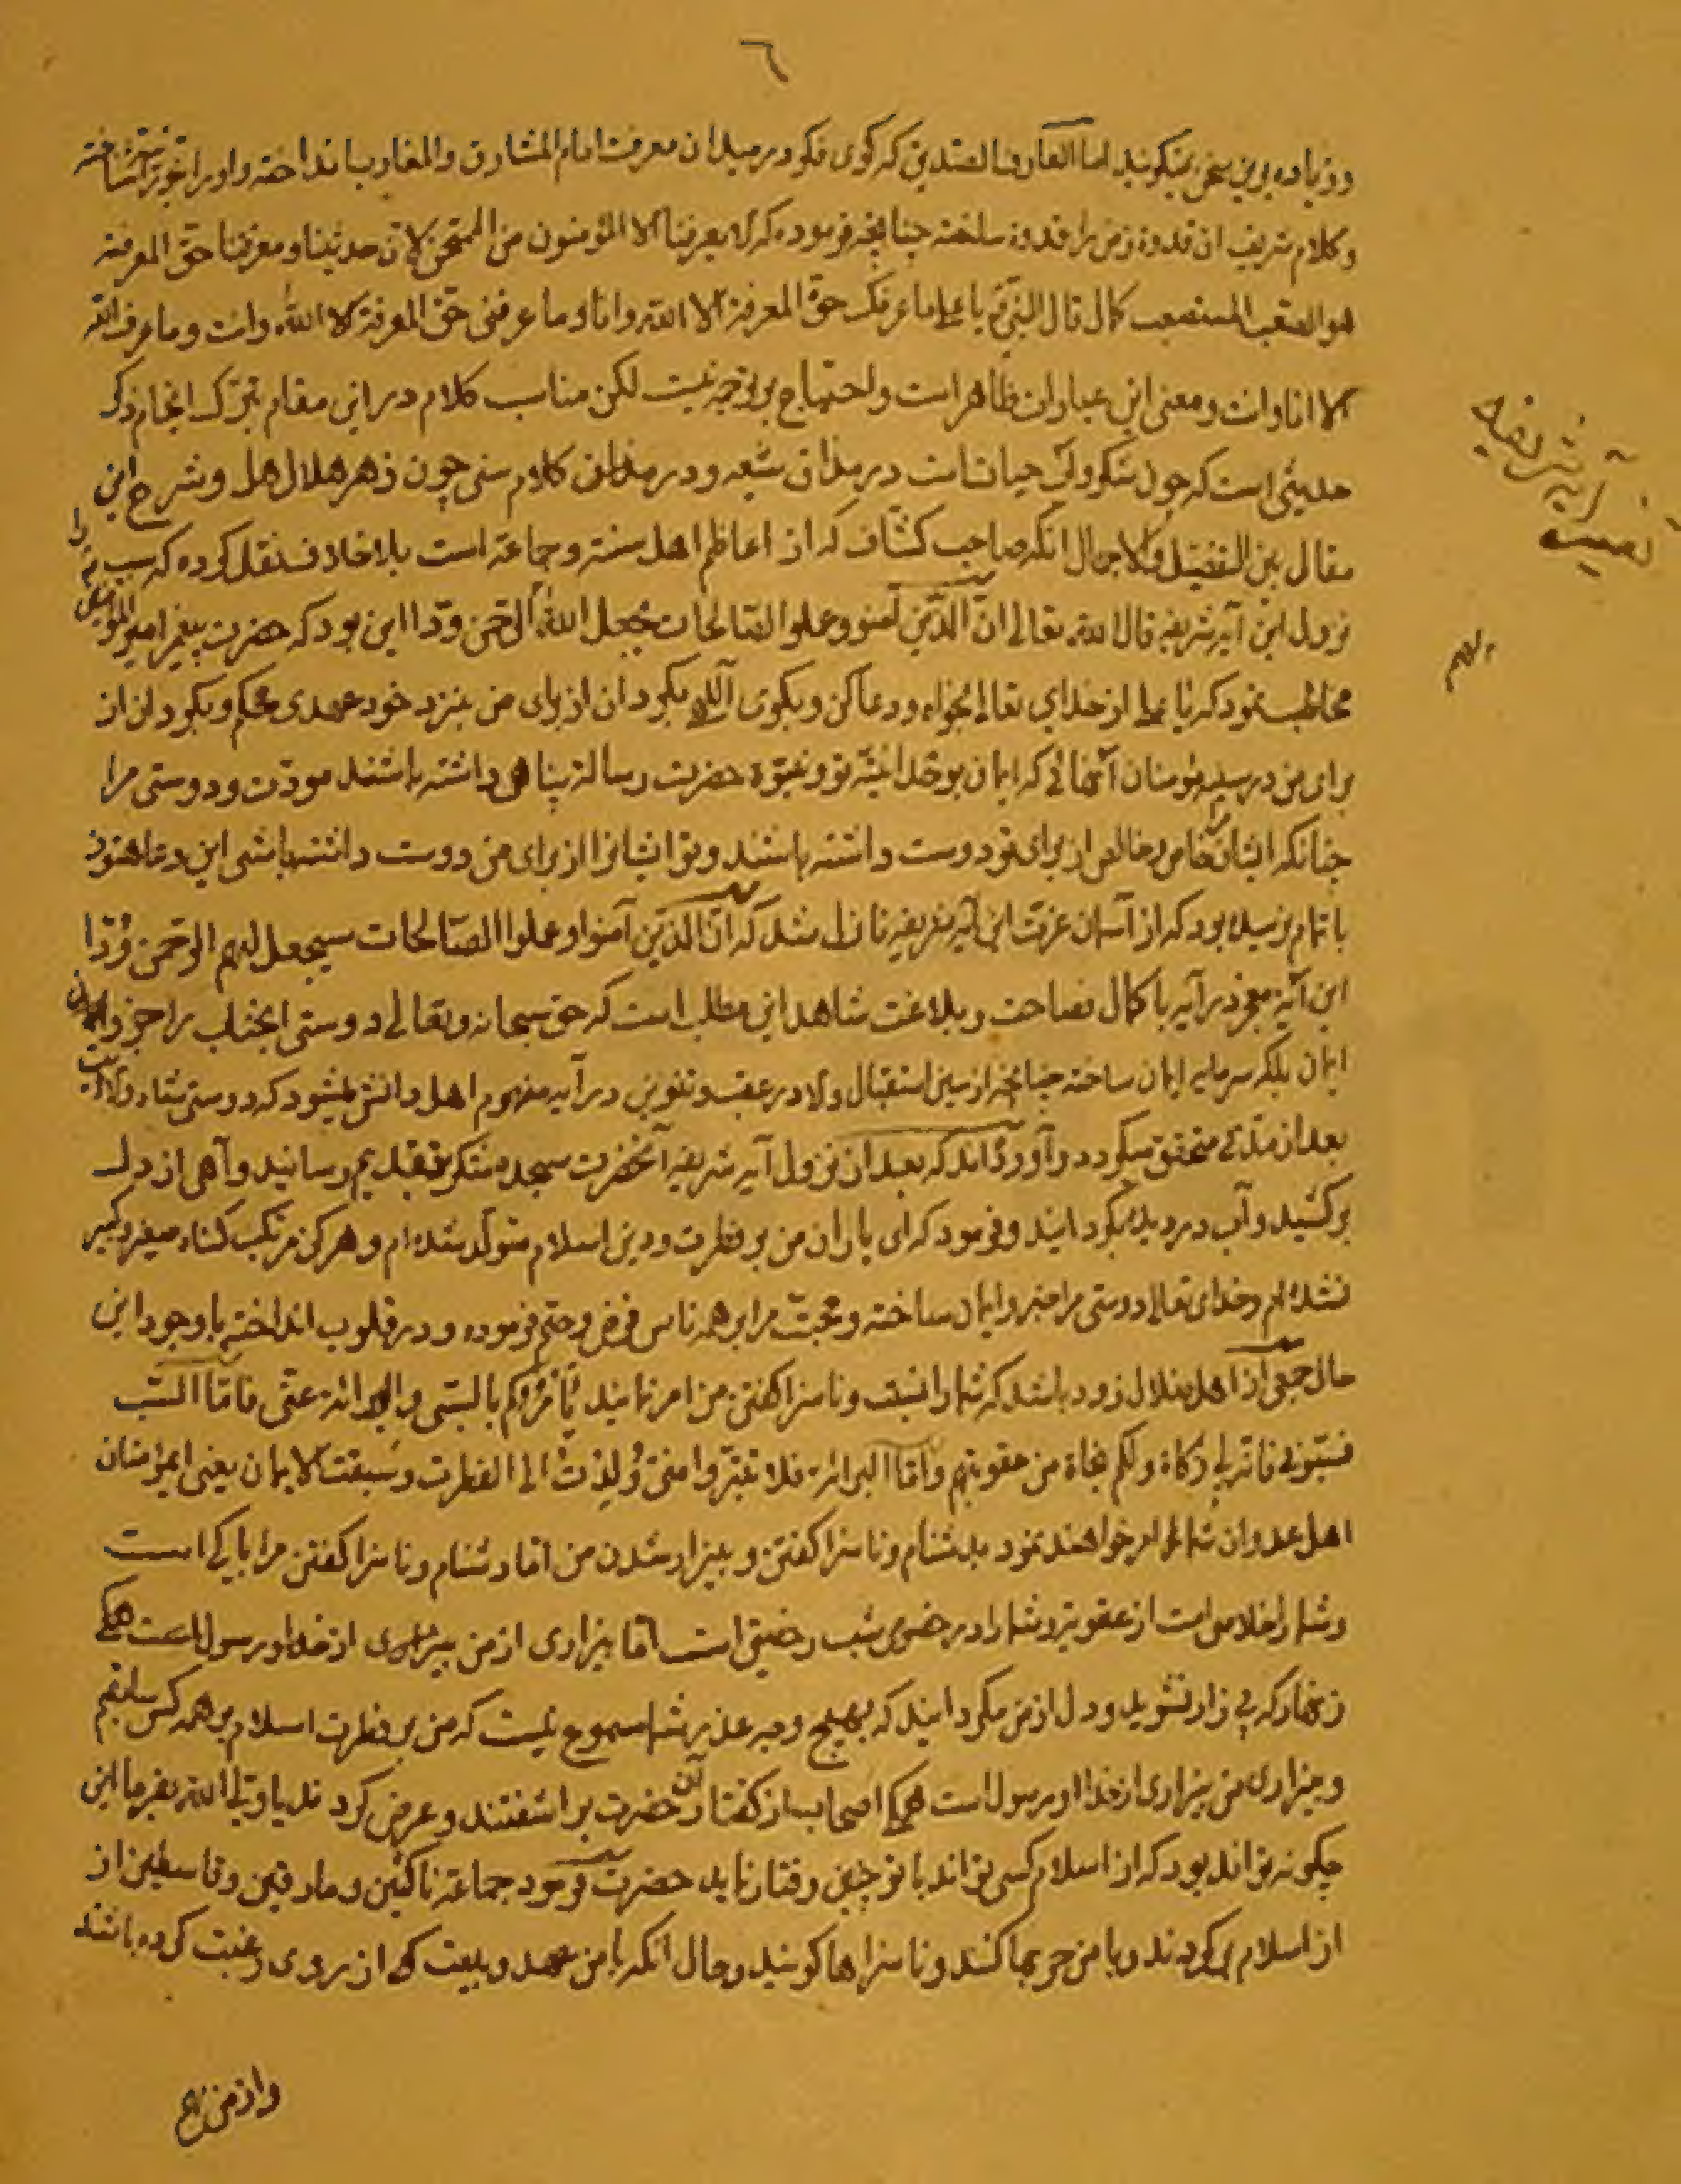 ٦
و زیاده برین سخن نمیکوید اما العارف الصدیق که کوی نکو در میدان معرفت امام المشارق والمغارب انداخته و او را
و کلام شریف ان قدوهٔ زمن را قدوه ساخته چنانچه فرموده که لا یعرفنا الا المؤمنون من الممتحن لان حدیثنا و معرفتنا حق المعرفة
هو الصعب المستصعب کما قال النبی یا علی ما عرفک حق المعرفة الا الله وانا وما عرفنی حق المعرفة الا الله وانت وما عرف الله
الا انا وانت و معنی این عبارات ظاهر است و احتیاج بر ترجمه نیست لکن مناسب کلام در این مقام تبرک انجام ذکر
حدیثی است که چون شکر و آب حیاتست در مذاق شیعه و در مذاق کلام سنی چون زهر هلاهل و شرح این
مقال بین التفصیل والاجمال انکه صاحب کشاف که از اعاظم اهل سنة و جماعة است بلا خلاف نقل کرده که سبب
نزول این آیه شریفه قال الله تعالی ان الذین آمنو وعملوا الصالحات سیجعل الله الرحمن ودا این بود که حضرت پیغمبر امیرالمؤمنین را
مخاطب نمود که یا علی از خدای تعالی بخواه و دعا کن و بکوی آلهی بکردان از برای من بنزد خود عهدی محکم و بکردان از
برای من در سینه مؤمنان آنهائی که ایمان بوحدانیت تو و نبوة حضرت رسالة پناهی داشته باشند مودت و دوستی مرا
چنانکه ایشان خاص و خالص از برای تو دوست داشته باشند و تو ایشانرا از برای من دوست داشته باشی این دعا هنوز
باتمام نرسیده بود که از آسمان عزت این آیه شریفه نازل شد که ان الذین آمنوا وعملوا الصالحات سیجعل لهم الرحمن ودا
این آیه معجز در آیه با کمال فصاحت و بلاغت شاهد این مطلب است که حق سبحانه و تعالی دوستی انجناب را جزو
ایمان بلکه سرمایه ایمان ساخته چنانچه از سین استقبال و لا در عقب و تنوین در آیه مفهوم اهل دانش میشود که دوستی شاه ولایت
بعد از مدتی متحقق میکردد و آورده‌اند که بعد از نزول آیه شریفه آنحضرت سجده شکر بتقدیم رسانید و آهی از دل
برکشید و آب در دیده بکردانید و فرمود که ای یاران من بر فطرت و دین اسلام متولد شده‌ام و هرکز مرتکب کناه صغیر و کبیر
نشده‌ام و خدای تعالی دوستی مرا جزو ایمان ساخته و محبت مرا بر همه ناس فرض و حتم فرموده و در قلوب انداخته با وجود این
حال جمعی از اهل ضلال زود باشد که شما را بسب و ناسزا کفتن من امر نمایند یأمرکم بالسبی والبرائة عنی فاما السب
فسبونی فانه لی زکاة ولکم نجاة من عقوبتهم واما البرائة فلا تتبروا منی ولدت الی الفطرت وسبقت الایمان یعنی ای مؤمنان
اهل عدوان شما را امر خواهند نمود بدشنام و ناسزا کفتن و بیزار شدن من اما دشنام و ناسزا کفتن مرا پاکی است
و شما را خلاصی است از عقوبت و شما را در خصوص سب رخصتی است اما بیزاری از من بیزاری از خدا و رسول است همکی
زنهار که بیزار نشوید و دل از من مکردانید که بهیچ وجه عذر شما مسموع نیست که من بر فطرت اسلام بر همه کس سابقم
و بیزاری من بیزاری از خدا و رسول است همکی اصحاب از کفتار آن حضرت برآشفتند و عرض کردند یا ولی الله بفرما این
چکونه تواند بود که از اسلام کسی تواند با تو چنین رفتار نماید حضرت فرمود جماعة ناکثین و مارقین و قاسطین از
از اسلام برکردند و با من حربها کنند و ناسزاها کویند و حال انکه با من عهد و بیعت که از روی رغبت کرده باشند
آیه شریفه
و از من